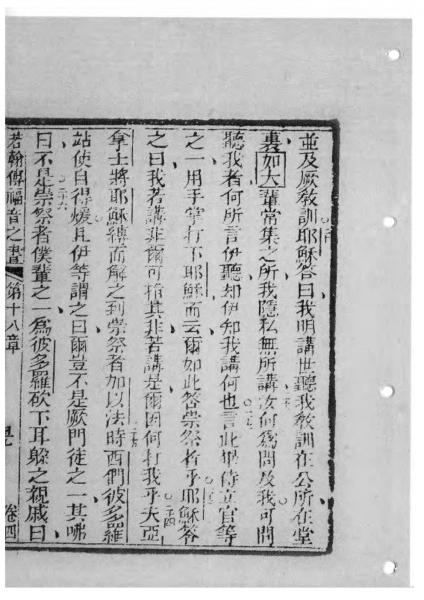 並及厥教訓耶穌答曰我明講世聽我教訓在公所在堂
裏如大輩常集之所我隱私無所講汝何為問及我可問
聽我者何所言伊聽却伊知我講何也言此畢侍立官等
之一用手掌打下耶穌而云爾如此答崇祭者乎耶穌答
之曰我若講非爾可指其非若講是爾因何打我乎大亞
拿士將耶穌縛而解之到崇祭者加以法時西們彼多羅
站使自得煖且伊等謂之曰爾豈不是厥門徒之一其咈
曰不是崇祭者僕輩之一為彼多羅砍下耳躲之親戚曰
若翰傳福音之書 第十八章 卷四
二十
二四
二五
二六